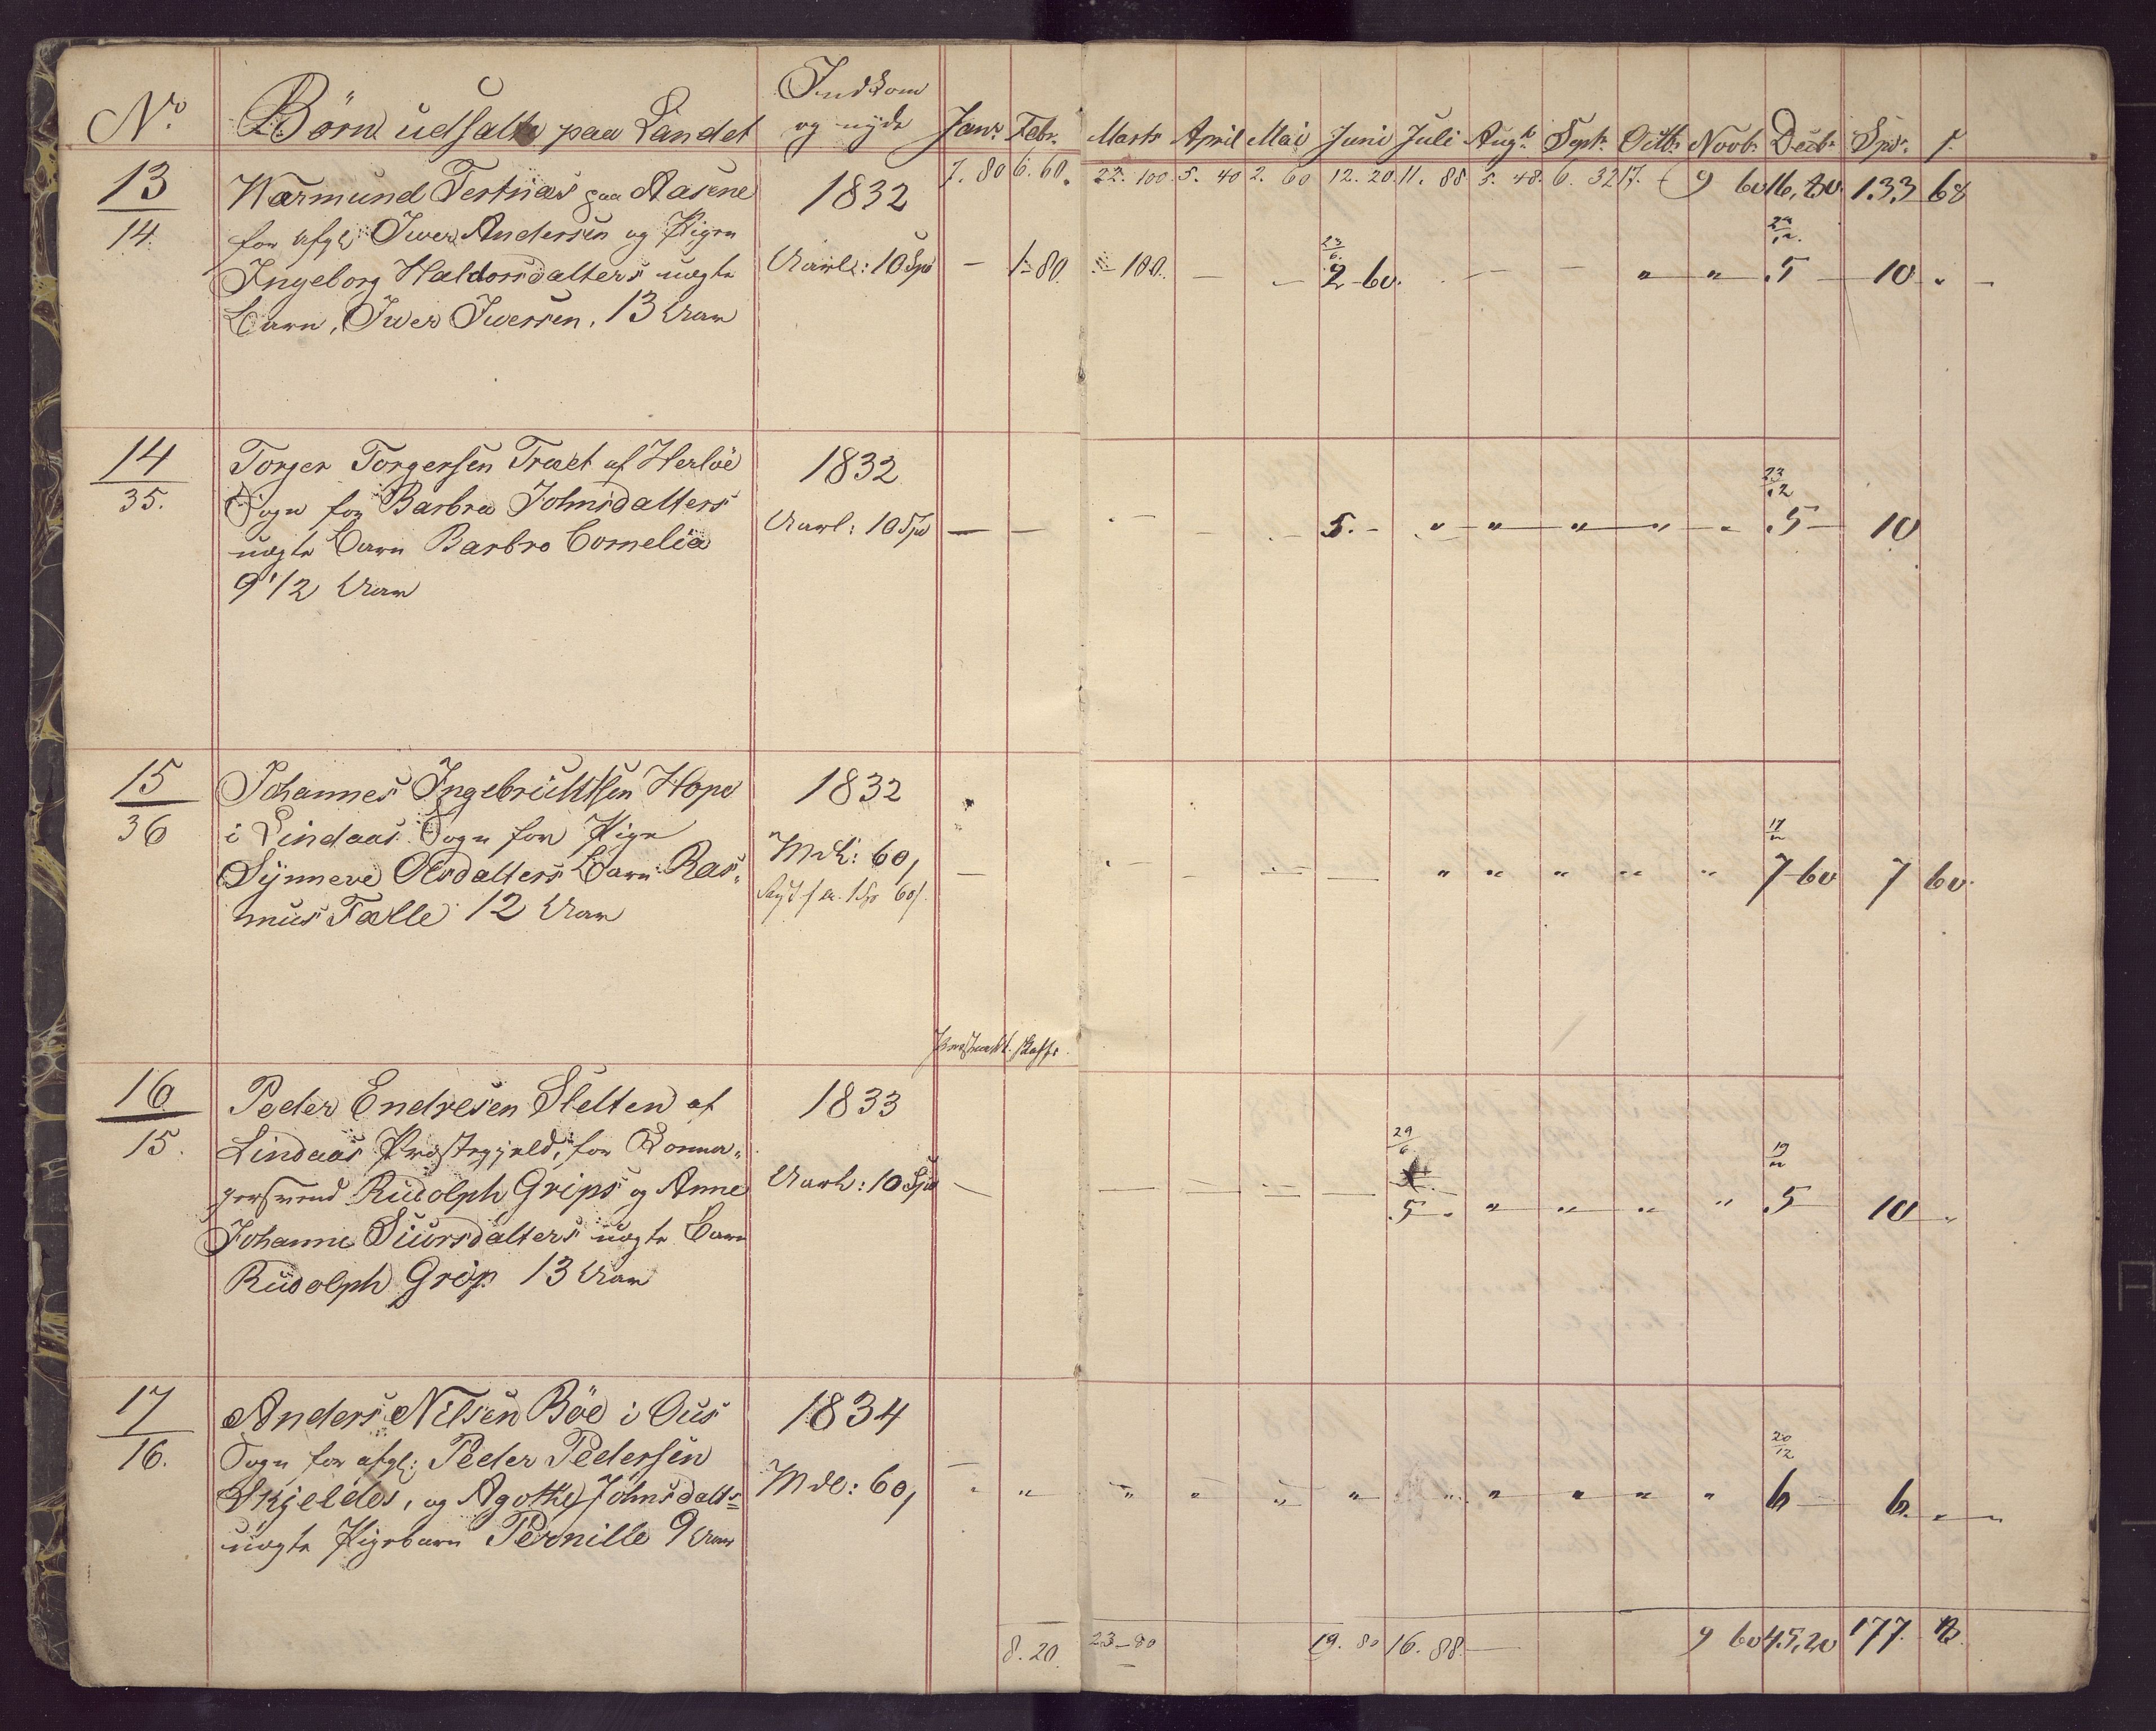 No. Börn udsatte paa Landet Indkom og nyde Janr. Febr. Marts April Mai Juni Juli Augt. Septr. Octbr. Novbr. Decbr. Spdr. s.
7. 80 6. 60. 22. 100. 5. 40 2. 60 12. 20. 11. 88 5. 48. 6. 32 17. 9 60 16, 80. 133 68
13 Wærmund Tertnæs paa Aasene 1832
14. for afgl. Iwer Andersen og Pigen
Ingeborg Haldorsdatters uægte Aarl: 10 Spd — 1-80. 100. — — 23/6 2-60. — — „ „ 24/12. 5 — 10 „ —
Barn, Iwer Iwersen. 13 Aar
14 Torger Torgersen Træet af Herlöe 1832
35. Sogn for Barbra Johnsdatters
uægte Barn Barbro Cornelia Aarl: 10 Spd — — — — — 5. — „ „ „ „ „ 23/12 5 — 10
9 1/2 Aar
15 Johannes Ingebrichtsen Hope 1832
36 i Lindaas Sogn for Pigen
Synneve Olsdatters Barn Ras- Mdl: 60, — — — — — „ „ „ „ „ 17/12 7-60 7 60.
mus Fælle 12 Aar
16 Peder Endresen Sletten af 1833
15. Lindaas Præstegjeld, for
Rudolph Grips og Anne Aarl: 10 Spd — — — — — 29/6 5 „ „ „ „ „ 19/12 5 — 10 „
Johanne Siursdatters uægte Barn
Rudolph Grip 13 Aar
17 Anders Nilsen Böe i Ous 1834
16. Sogn for afgl: Peder Pedersen
Skjeldes, og Agothe Johnsdatts Mdl: 60, „ „ „ „ „ „ „ „ „ „ „ 20/12 6 — 6. „ —
uægte Pigebarn Pernille 9 Aar
8. 20. 23-80 19. 80 16. 88. — 9 60 45, 20 177.